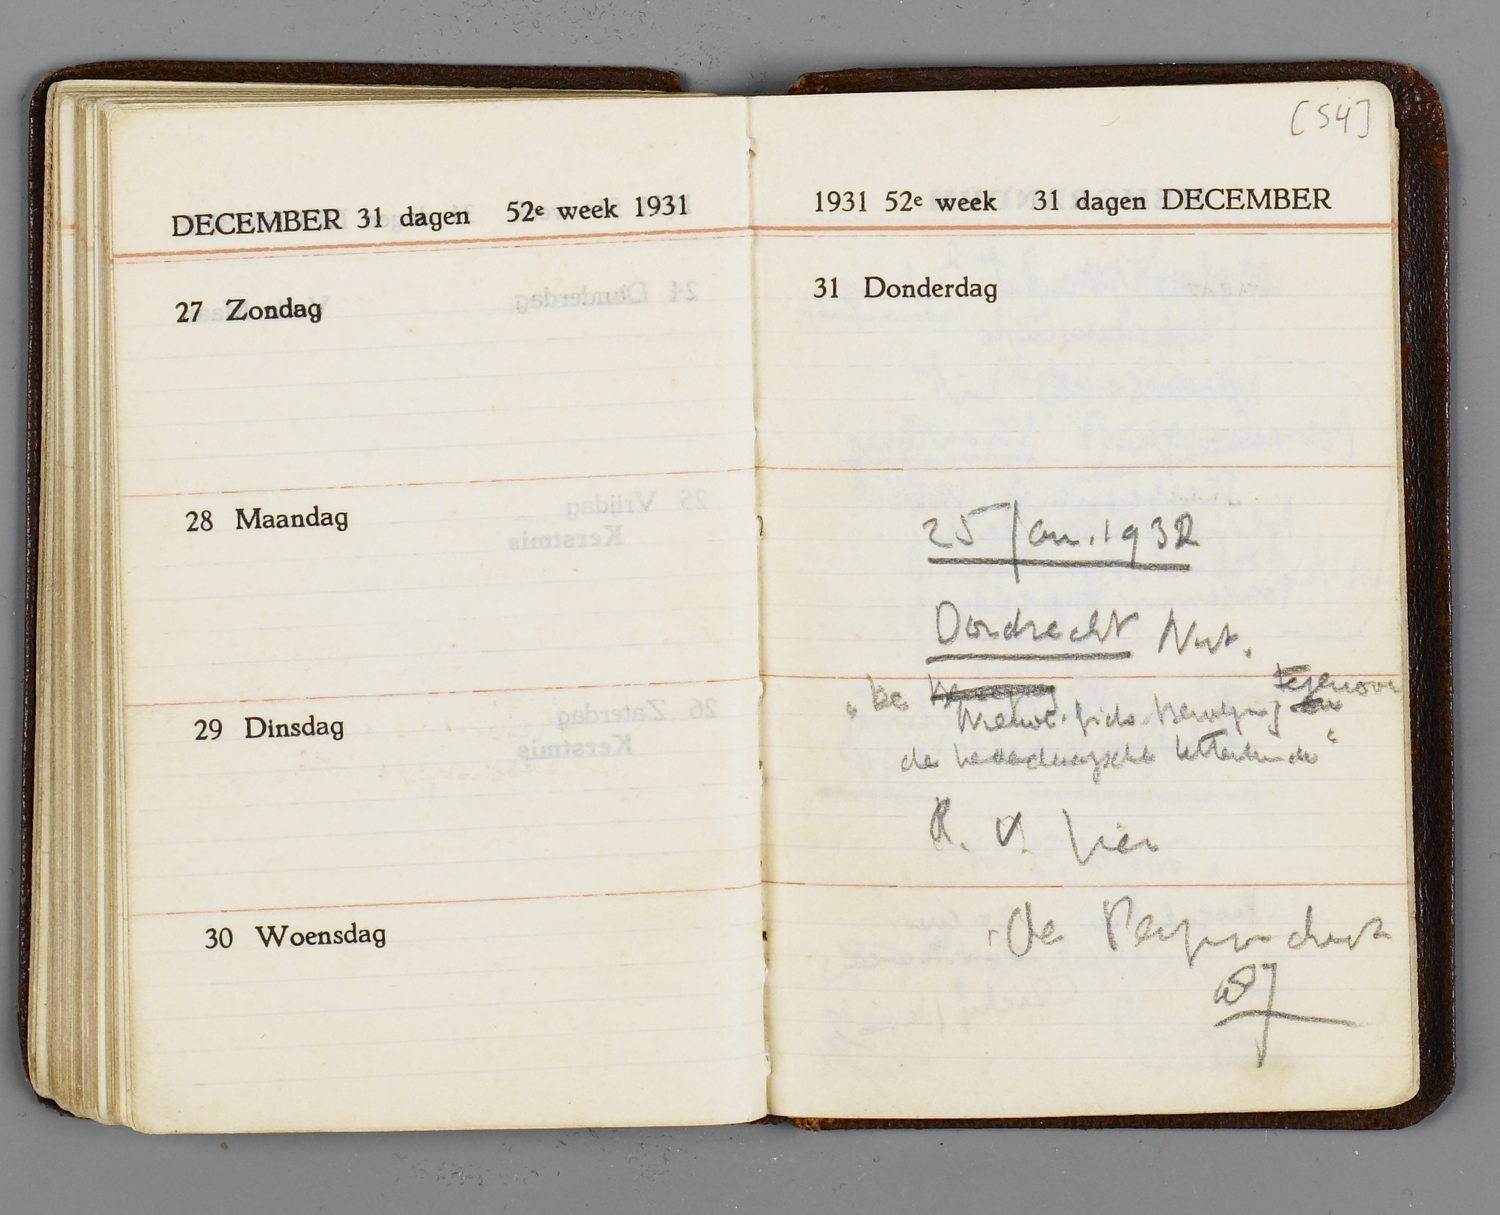 DECEMBER 31 dagen 52e week 1931
27 Zondag
28 Maandag
29 Dinsdag
30 Woensdag
[54]
1931 52e week 31 dagen DECEMBER
31 Donderdag
25 Jan. 1932
Dordrecht Nut.
tegenover
de hedendaagsche letterkunde"
R. v. Lier